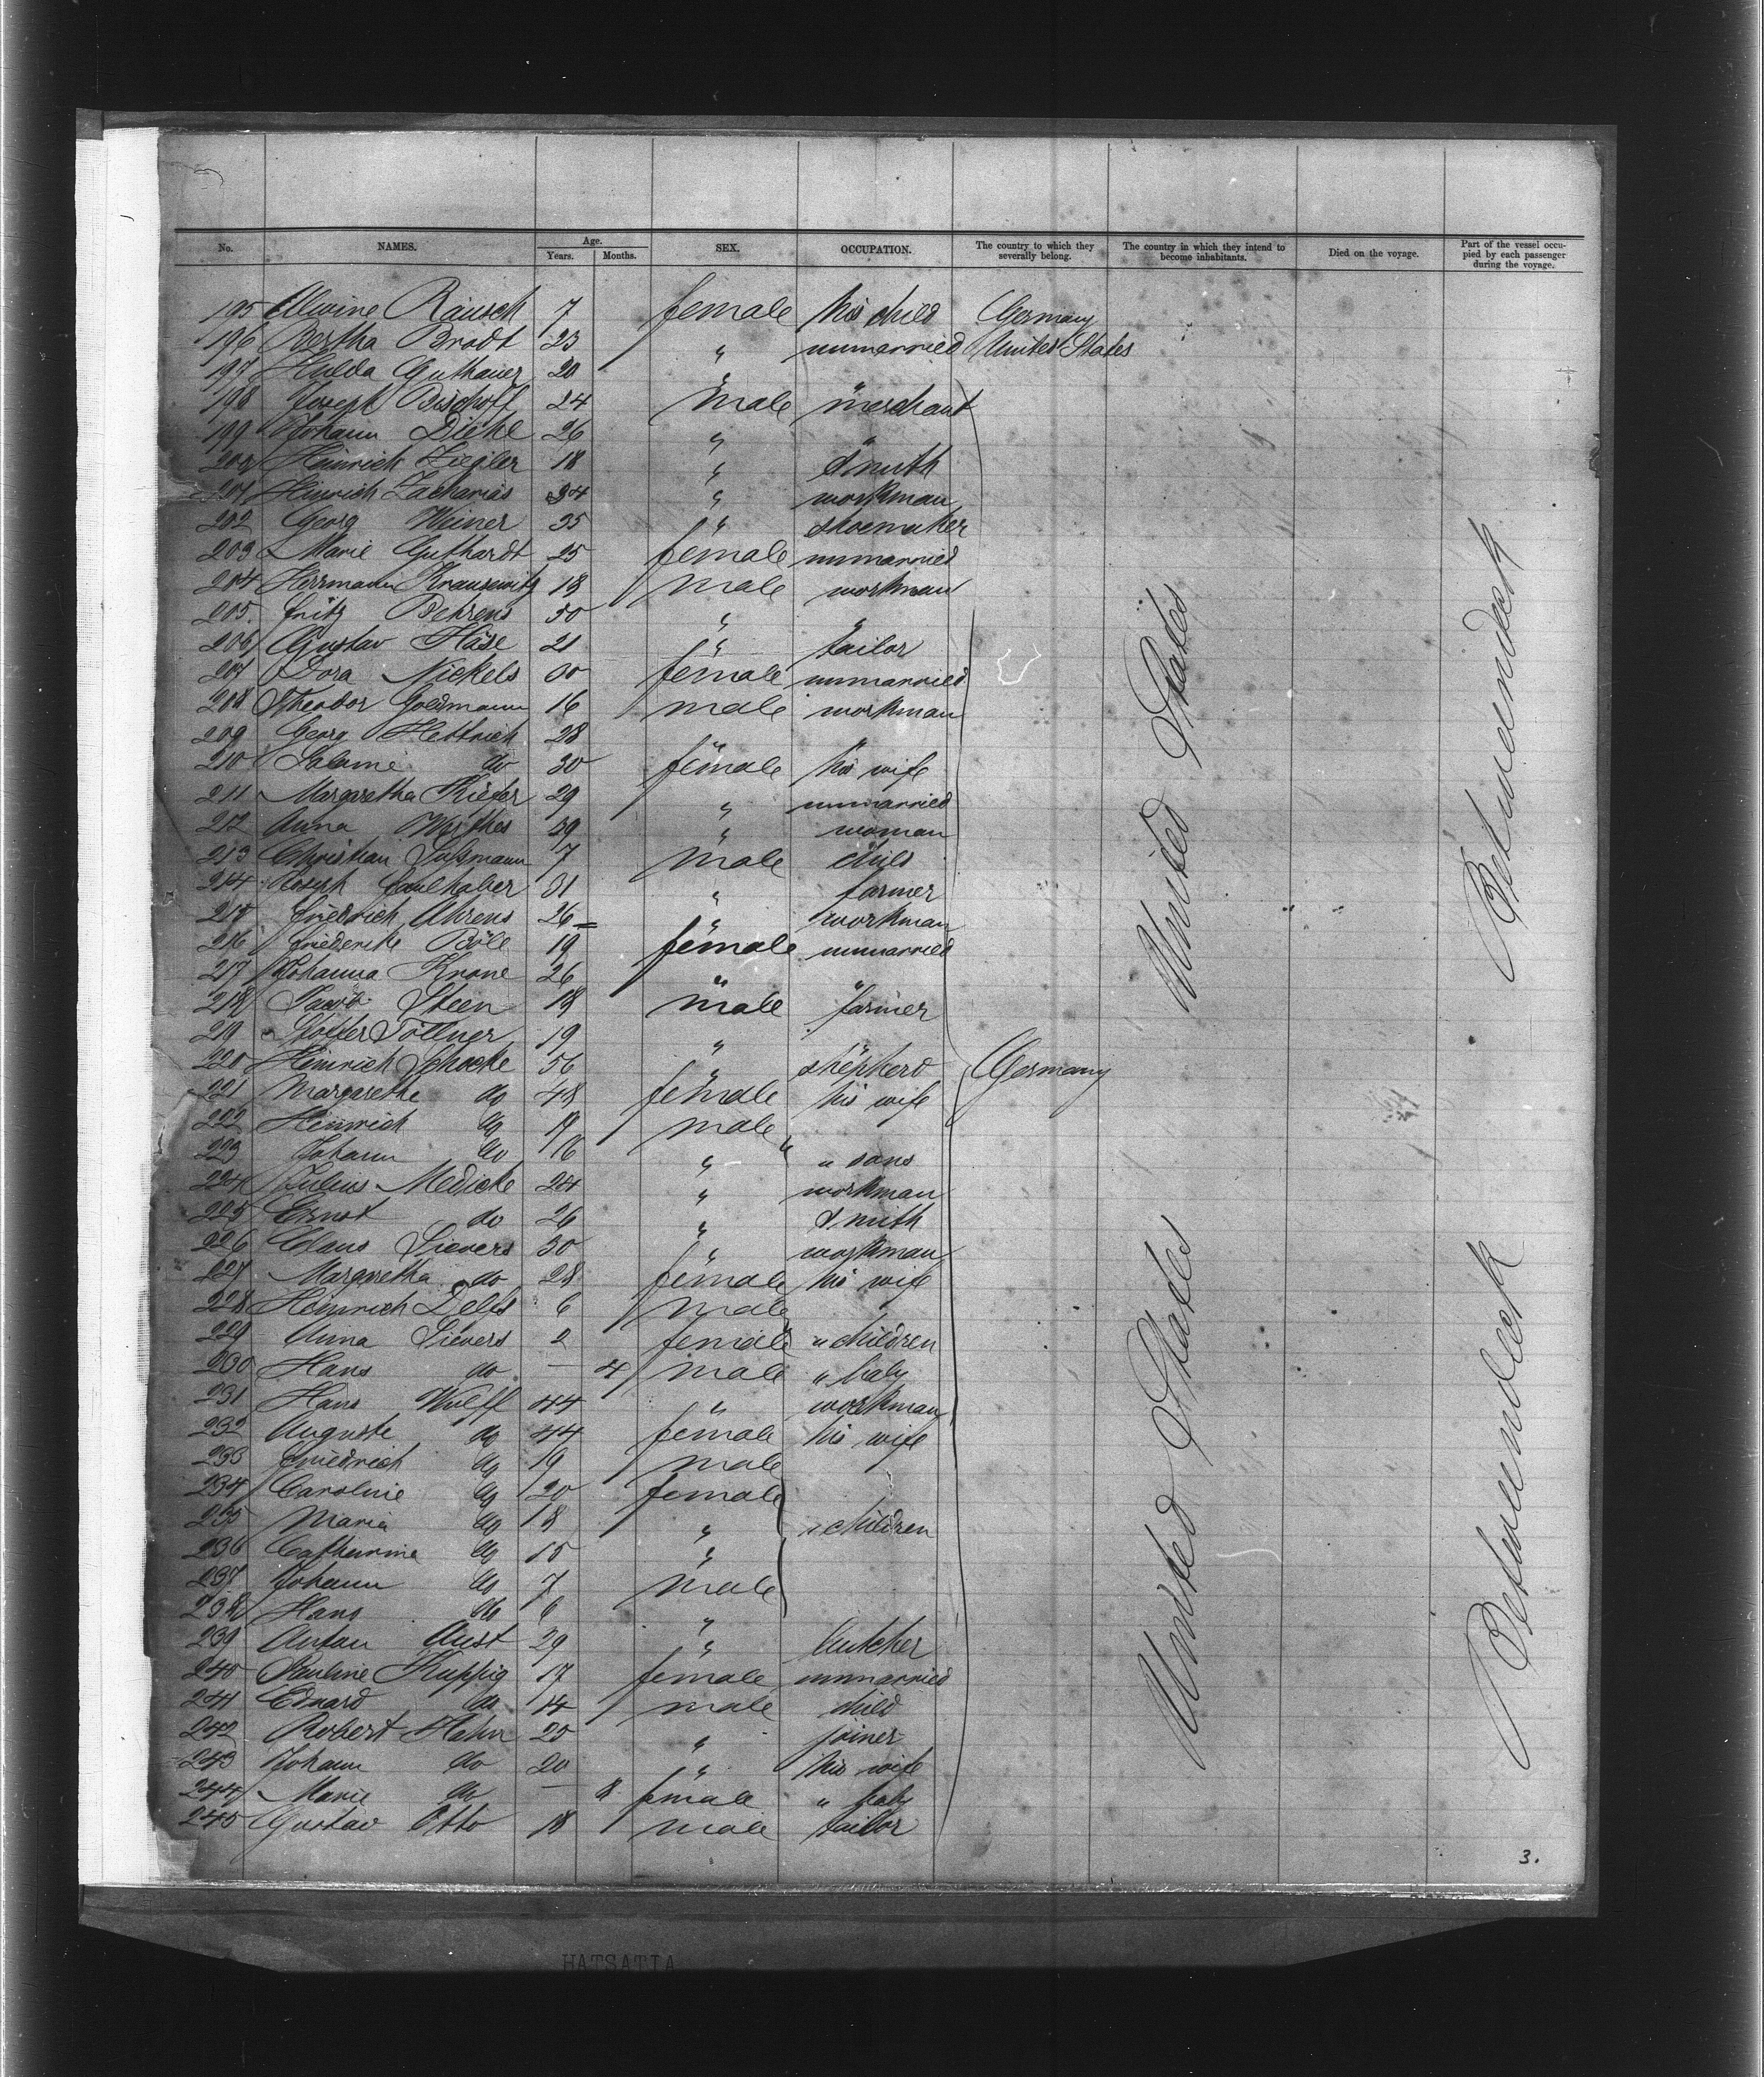 No. NAMES. Age. Years. Months. SEX. OCCUPATION. The country to which they severally belong. The country in which they intend to become inhabitants. Died on the voyage. Part of the vessel occupied by each passenger during the voyage.
195 Alwine Räusch 7 female his child Germany
196 Bertha Brodt 23 " unmarried United States
197 Hulda Guthauer 20 " "
198 Joseph Bischoff 24 male merchant
199 Johann Diehl 26 " "
200 Heinrich Ziegler 18 " Smith
201 Heinrich Zacharias 34 " workman
202 Georg Weiner 35 " shoemaker
203 Marie Guthardt 25 female unmarried
204 Herrmann Krausewitz 18 male workman
205. Fritz Behrens 50 " "
206 Gustav Häse 21 " tailor
207 Dora Nickels female unmarried
208 Theodor Goldmann 16 male workman
209 Georg Hettrich 28 " "
210 Salome do 30 female his wife
211 Margaretha Kiefer 29 " unmarried
212 Anna 39 " woman
213 Christian 7 male child
214 Joseph Faulhaber 31 " farmer
215 Friedrich Ahrens 26 " workman
216 Friederike Böle 19 female unmarried
217 Johanna Krone 26 " "
218 Jacob Steen 18 male farmer
219 Töllner 19 " "
220 Heinrich Schocke 56 " shepherd Germany
221 Margarethe do 48 female his wife
222 Heinrich do 19 male
223 Johann do 16 " " sons
224 Julius Medicke 24 " workman
225 Ernst do 26 " Smith
226 Claus Sievers 30 " workman
227 Margaretha do 28 female his wife
228 Heinrich Delfs 6 male
229 Anna Sievers 2 female " children
230 Hans do — 4 male " baby
231 Hans Wulff 44 " workman
232 Auguste do 44 female his wife
233 Friedrich do 19 male
234 Caroline do 20 female
235 Maria do 18 " " children
236 Catharine do 10 "
237 Johann do 7 male
238 Hans do 6 "
239 Anton Aust 29 " butcher
240 Pauline Kuppig 17 female unmarried
241 Eduard do 14 male child
242 Robert Hahn 25 " joiner
243 Johann do 20 " his wife
244 Marie do — 8 female " baby
245 Gustav Otto 18 male tailor
United States
United States
Betweendeck
Betweendeck
3.
HATSATIA